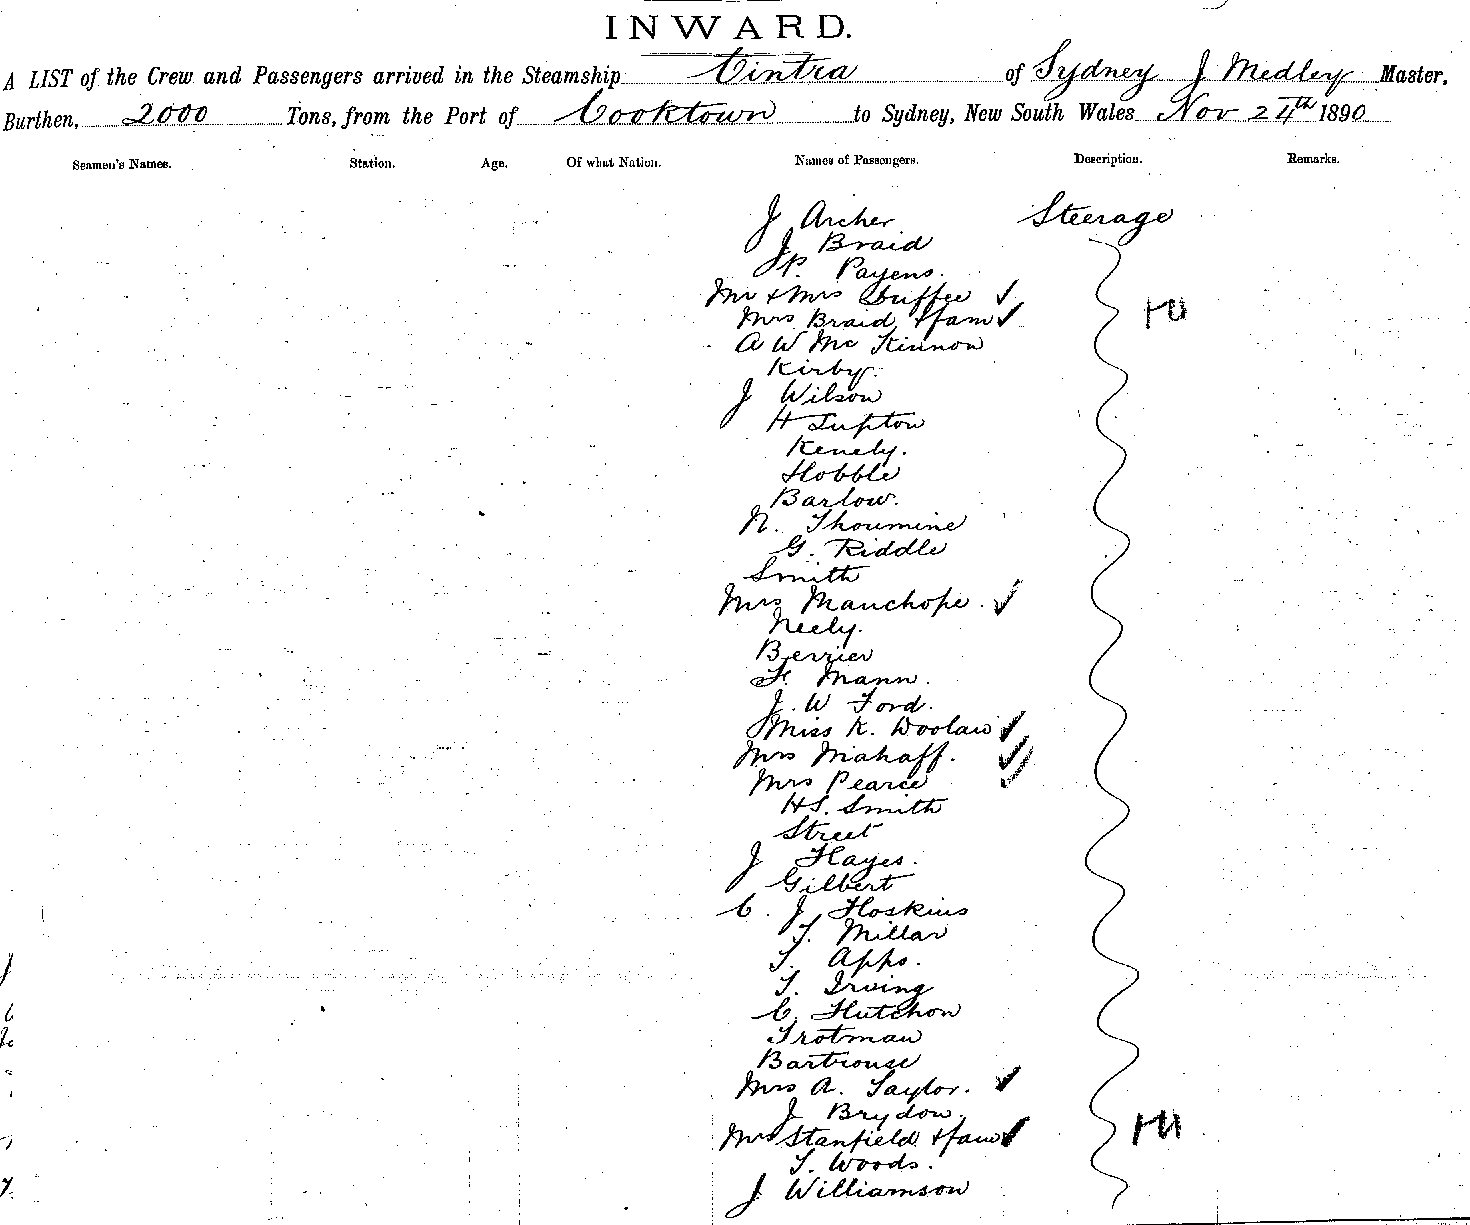 INWARD.
A LIST of the Crew and Passengers arrived in the Steamship Cintra of Sydney J Medley Master,
Burthen, 2000 Tons, from the Port of Cooktown to Sydney, New South Wales Nov 24th 1890
Seamen's Names. Station. Age. Of what Nation. Names of Passengers. Description. Remarks.
J Archer Steerage
J Braid
P. Payens.
Mr & Mrs Duffee
Mrs Braid & fam
A W McKinnon
Kirby.
J Wilson
H Lupton
Kenely.
Hobble
Barlow.
N. Thoumine
G. Riddle
Smith
Mrs Manchope.
Neely.
Berrier
F. Mann.
J. W Ford.
Miss K. Woolaw
Mrs Mahaff.
Mrs Pearce
H S. Smith
Street
J Hayes.
Gilbert
C. J. Hoskins
T. Millar
T. Apps.
T. Irving
C. Hutchon
Trotman
Bartrouse
Mrs A. Taylor.
J Brydon.
Mrs Stanfield & fam
T. Woods.
J Williamson